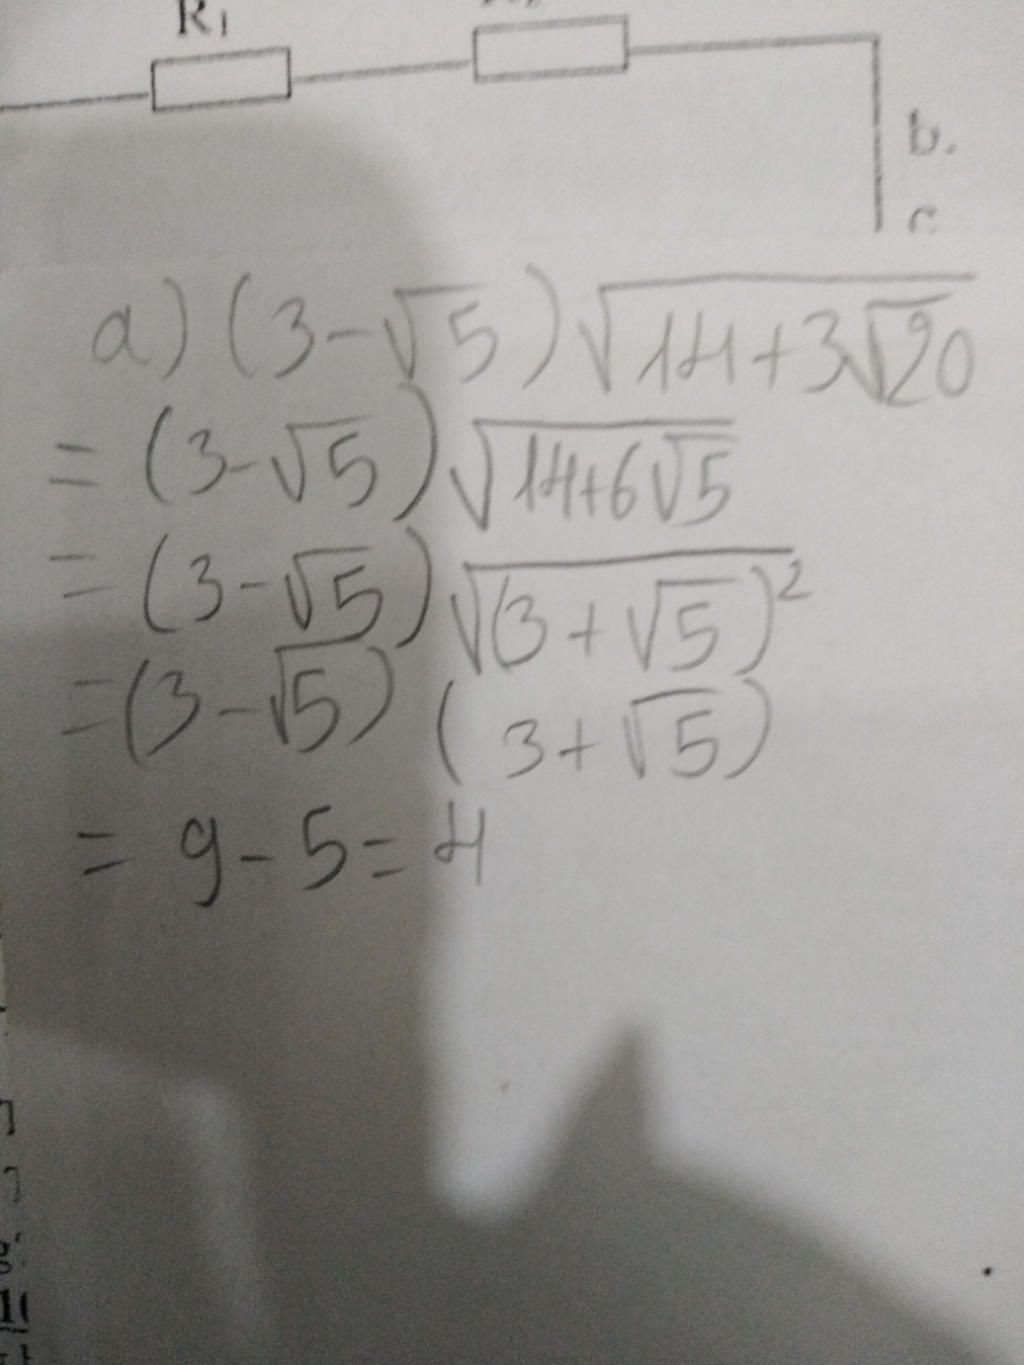 R1
b.
c
a) (3-√5)√(14+3√20)
= (3-√5)√(14+6√5)
= (3-√5)√((3+√5)²)
= (3-√5) (3+√5)
= 9-5=4